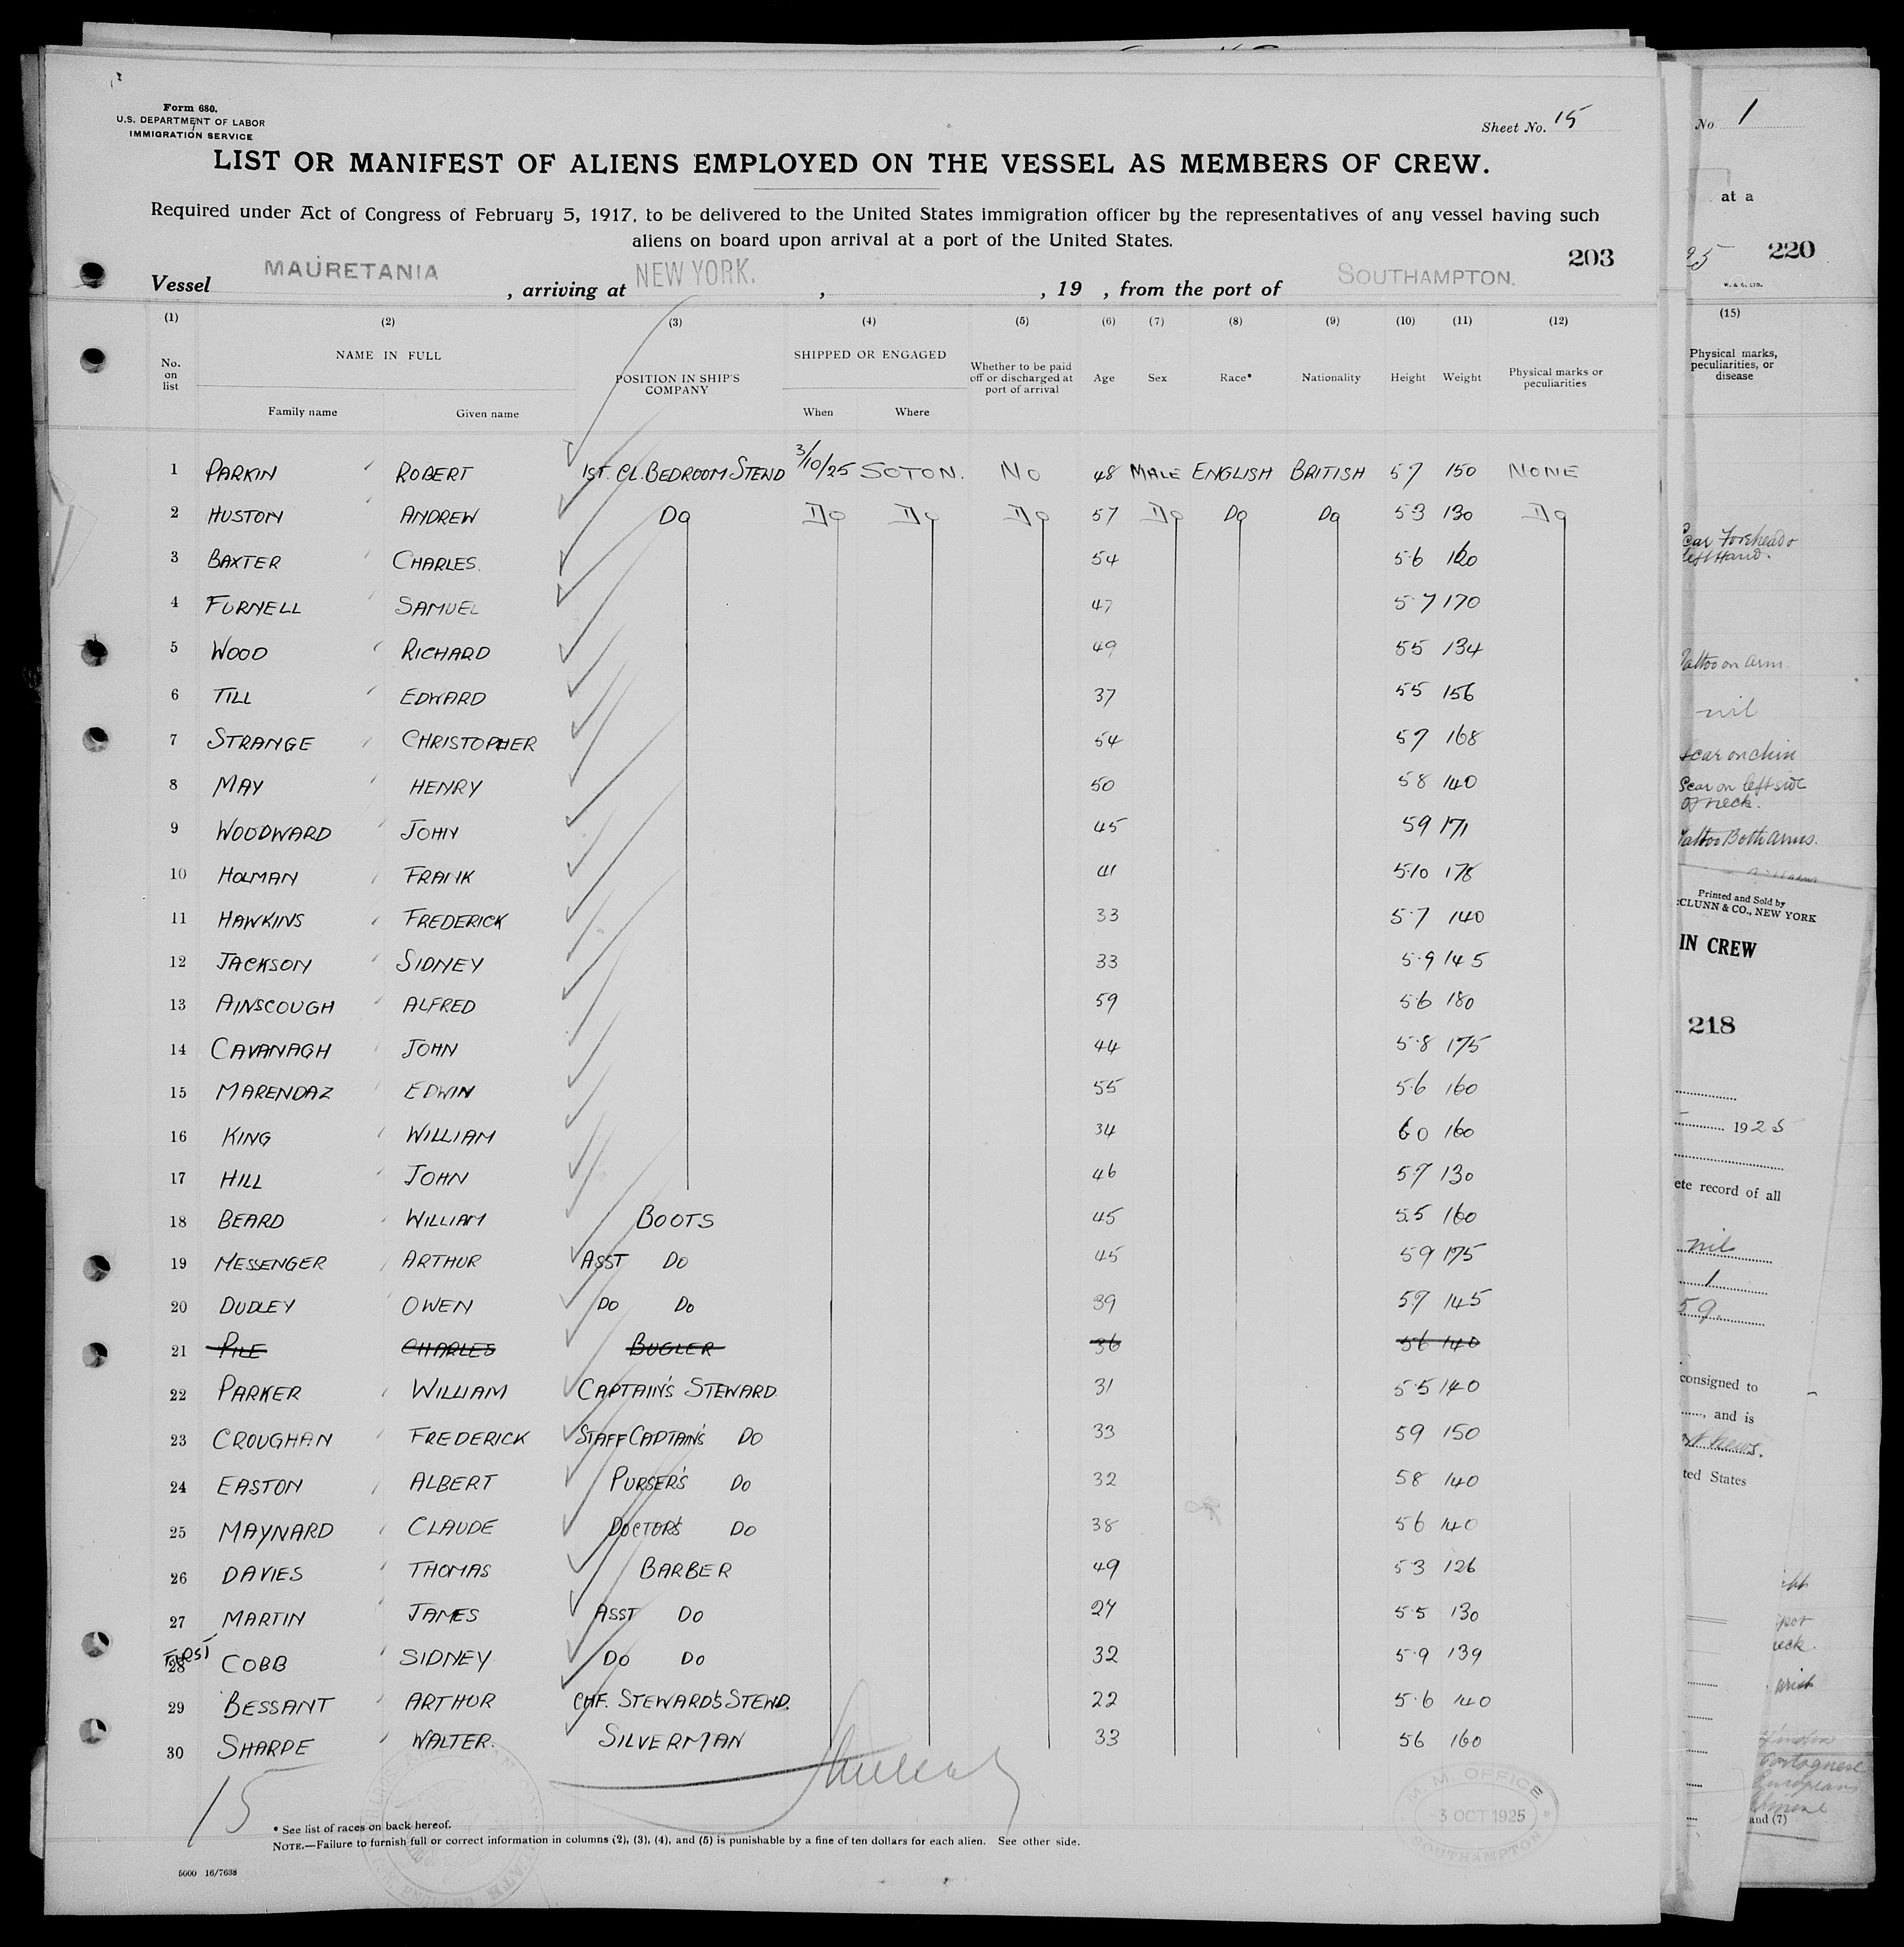 Form 680.
U.S. DEPARTMENT OF LABOR
IMMIGRATION SERVICE
Sheet No. 15
LIST OR MANIFEST OF ALIENS EMPLOYED ON THE VESSEL AS MEMBERS OF CREW.
Required under Act of Congress of February 5, 1917, to be delivered to the United States immigration officer by the representatives of any vessel having such
aliens on board upon arrival at a port of the United States.
203
Vessel MAURETANIA , arriving at NEW YORK. , , 19 , from the port of SOUTHAMPTON.
(1) (2) (3) (4) (5) (6) (7) (8) (9) (10) (11) (12)
No. on list NAME IN FULL POSITION IN SHIP'S COMPANY SHIPPED OR ENGAGED Whether to be paid off or discharged at port of arrival Age Sex Race* Nationality Height Weight Physical marks or peculiarities
Family name Given name When Where
1 PARKIN ROBERT 1ST. CL. BEDROOM STEWD 3/10/25 SOTON. NO 48 MALE ENGLISH BRITISH 57 150 NONE
2 HUSTON ANDREW DO DO DO DO 57 DO DO DO 53 130 DO
3 BAXTER CHARLES. 54 5·6
4 FURNELL SAMUEL 47 5·7 170
5 WOOD RICHARD 49 55 134
6 TILL EDWARD 37 55 156
7 STRANGE CHRISTOPHER 54 57 168
8 MAY HENRY 50 58 140
9 WOODWARD JOHN 45 59 171
10 HOLMAN FRANK 41 5·10 178
11 HAWKINS FREDERICK 33 5·7 140
12 JACKSON SIDNEY 33 5·9 145
13 AINSCOUGH ALFRED 59 5·6 180
14 CAVANAGH JOHN 44 5·8 175
15 MARENDAZ EDWIN 55 5·6 160
16 KING WILLIAM 34 60 160
17 HILL JOHN 46 5·7 130
18 BEARD WILLIAM BOOTS 45 5.5 160
19 MESSENGER ARTHUR ASST DO 45 59 175
20 DUDLEY OWEN DO DO 39 57 145
21 PILE CHARLES BUGLER 36 56 140
22 PARKER WILLIAM CAPTAIN'S STEWARD 31 5·5 140
23 CROUGHAN FREDERICK STAFF CAPTAIN'S DO 33 59 150
24 EASTON ALBERT PURSER'S DO 32 58 140
25 MAYNARD CLAUDE DOCTOR'S DO 38 56 140
26 DAVIES THOMAS BARBER 49 53 126
27 MARTIN JAMES ASST DO 27 5·5 130
FIRST
28 COBB SIDNEY DO DO 32 5·9 139
29 BESSANT ARTHUR CHF. STEWARD'S STEWD. 22 5·6 140
30 SHARPE WALTER. SILVERMAN 33 56 160
15
M. M. OFFICE
3 OCT 1925
SOUTHAMPTON
* See list of races on back hereof.
NOTE.—Failure to furnish full or correct information in columns (2), (3), (4), and (5) is punishable by a fine of ten dollars for each alien. See other side.
5000 16/7638
No 1
at a
25 220
W. & S. LTD.
(15)
Physical marks,
peculiarities, or
disease
Scar Forehead
left Hand.
Tattoo on arm
nil
Scar on chin
Scar on left side
of neck.
Tattoo Both arms.
Printed and Sold by
CLUNN & CO., NEW YORK
IN CREW
218
1925
ete record of all
nil
1
59
consigned to
, and is
ted States
Portuguese
European
and (7)